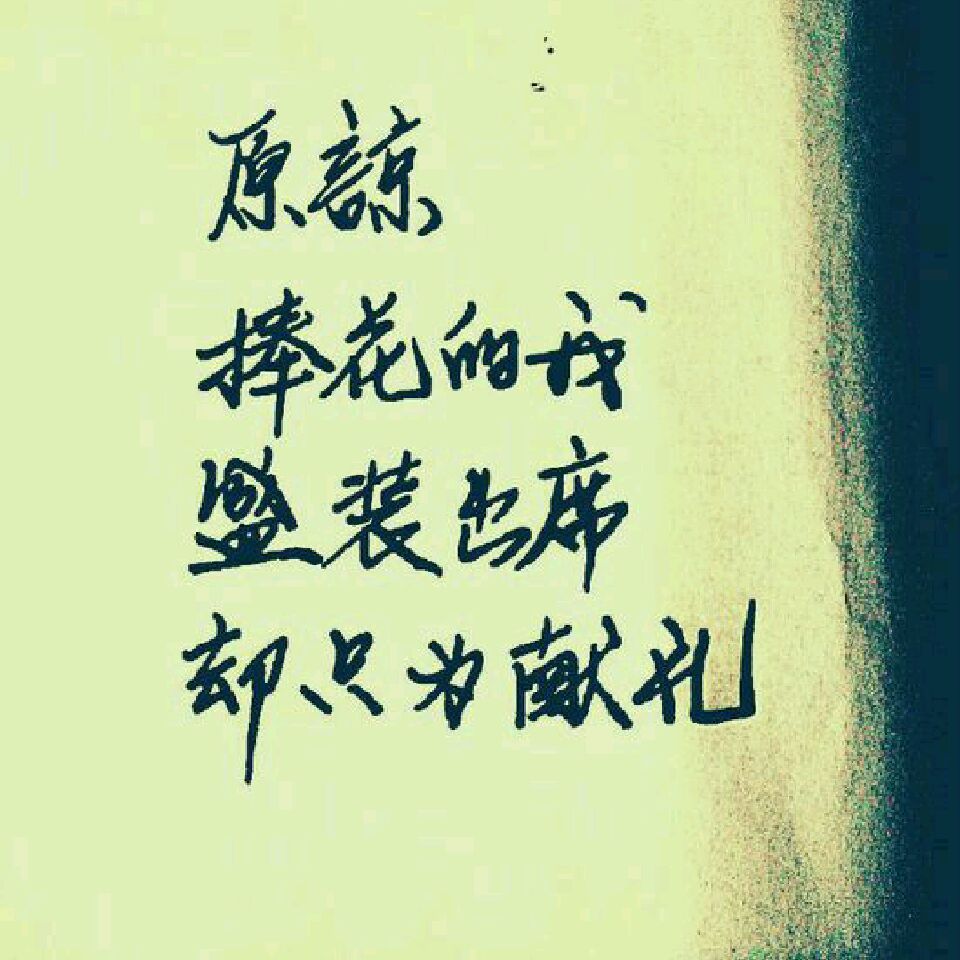 原諒
捧花的我
盛装出席
却只为献礼